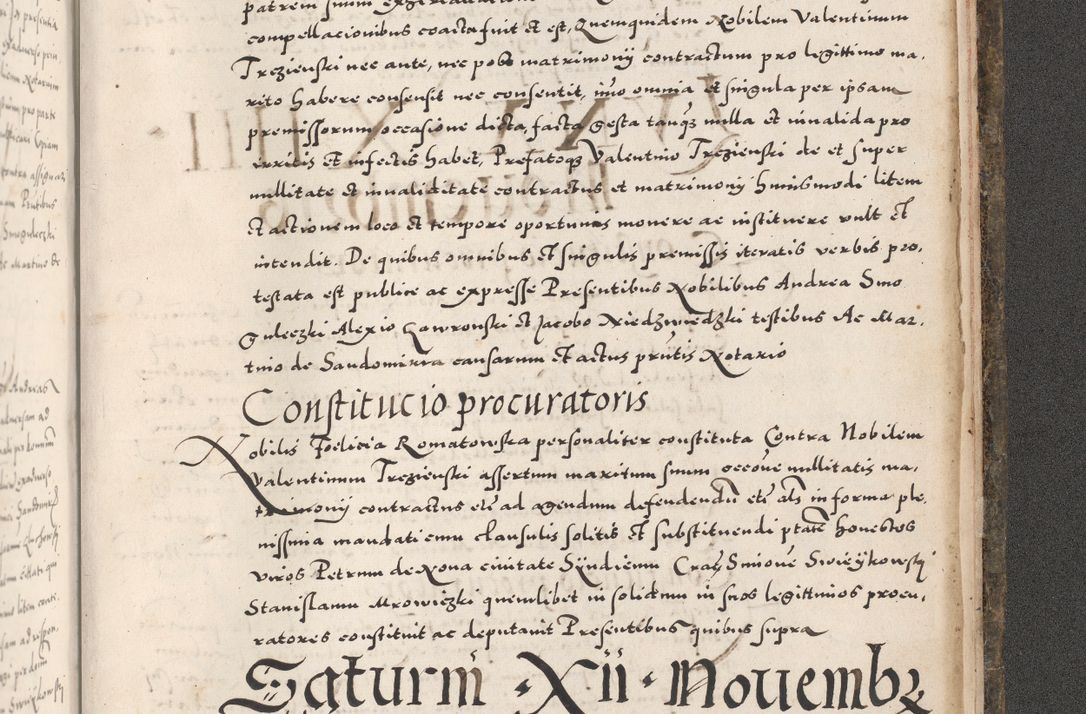 compellacionibus coacta fuit et est, Quemquidem Nobilem Valentinum
Trezienski nec ante, nec post matrimonij contractum pro legittimo ma,
rito habere consensit nec consentit, imo omnia et singula per ipsam
premissorum occasione dicta, facta gesta tanqz nulla et invalida pro
irritis et infectis habet, Prefatoqz Valentino Trezienski de et super
nullitate et invaliditate contractus et matrimonij huiusmodi litem
et actionem loco et tempore oportunis movere ac instituere vult et
intendit. De quibus omnibus et singulis premissis iteratis verbis pro,
testata est publice ac expresse Presentibus Nobilibus Andrea Smo
guleczki Alexio Gawronski et Jacobo Niedzwiedzki testibus Ac Mar,
tino de Sandomiria causarum et actus pntis Notario
Constitucio procuratoris
Nobilis Foelicia Romatowska personaliter constituta Contra Nobilem
Valentinum Trezienski assertum maritum suum occone nullitatis ma,
trimonij contractus etc ad agendum defendendu etc als in forma ple,
nissima mandati cum clausulis solitis et substituendi ptate honestos
viros Petrum de Nona civitate Syndicum Simone Swieykowskj
Stanislaum Mrowiczki quemlibet in solidum in suos legittimos procu,
ratores constituit ac deputavit Presentibus quibus supra
Saturni · Xii · Novembz